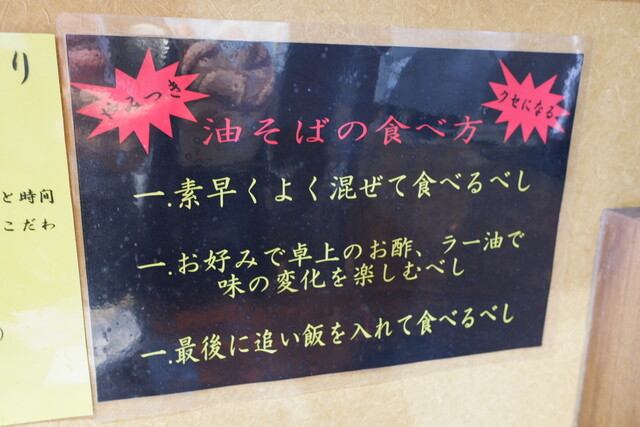 り
と時間
こだわ
やみつき
クセになる
油そばの食べ方
一.素早くよく混ぜて食べるべし
一.お好みで卓上のお酢、ラー油で
味の変化を楽しむべし
一.最後に追い飯を入れて食べるべし